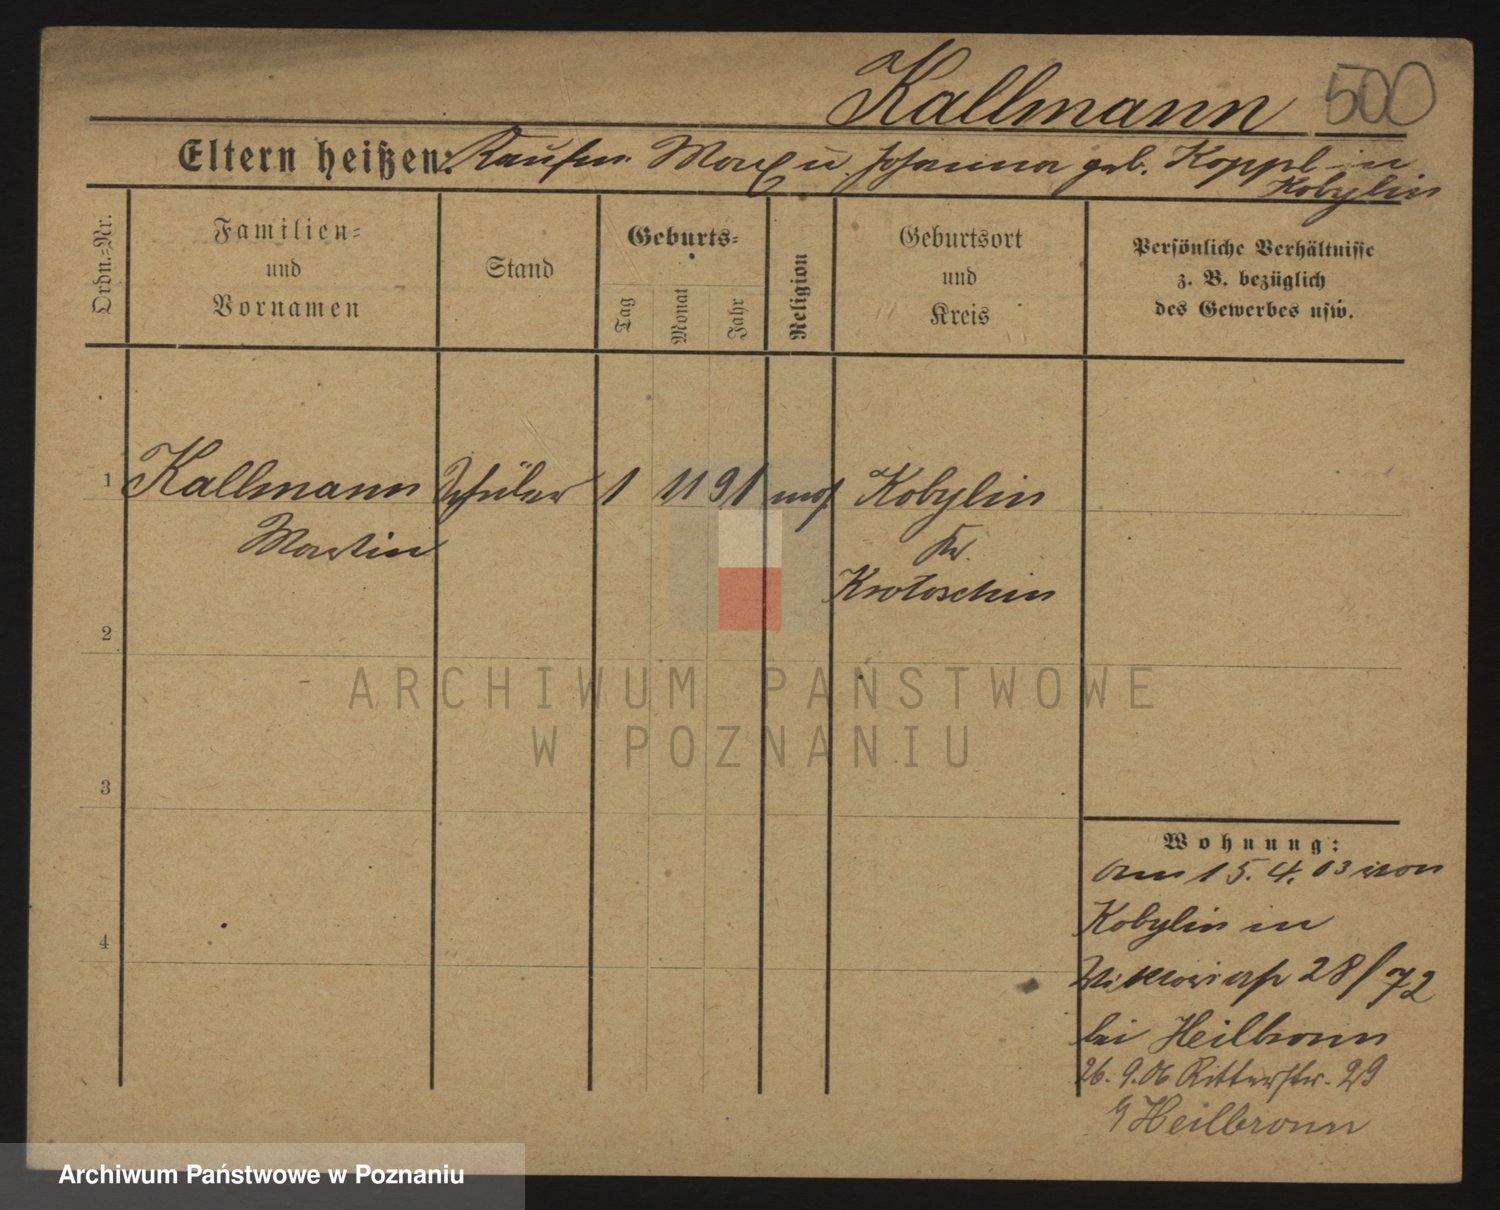 Kallmann 500
Eltern heißen: Kaufm. Max u. Johanna geb. Koppl in
Kobylin
Ordn.-Nr.
Familien-
und
Vornamen
Stand
Geburts-
Tag
Monat
Jahr
Religion
Geburtsort
und
Kreis
Persönliche Verhältnisse
z. B. bezüglich
des Gewerbes usw.
1 Kallmann Schüler 1 11 91 mos. Kobylin
Martin Kr.
Krotoschin
2
3
4
Wohnung:
am 15. 4. 03 von
Kobylin in
28/72
bei Heilbronn
26. 9. 06 Ritterstr. 29
Heilbronn
ARCHIWUM PAŃSTWOWE
W POZNANIU
Archiwum Państwowe w Poznaniu